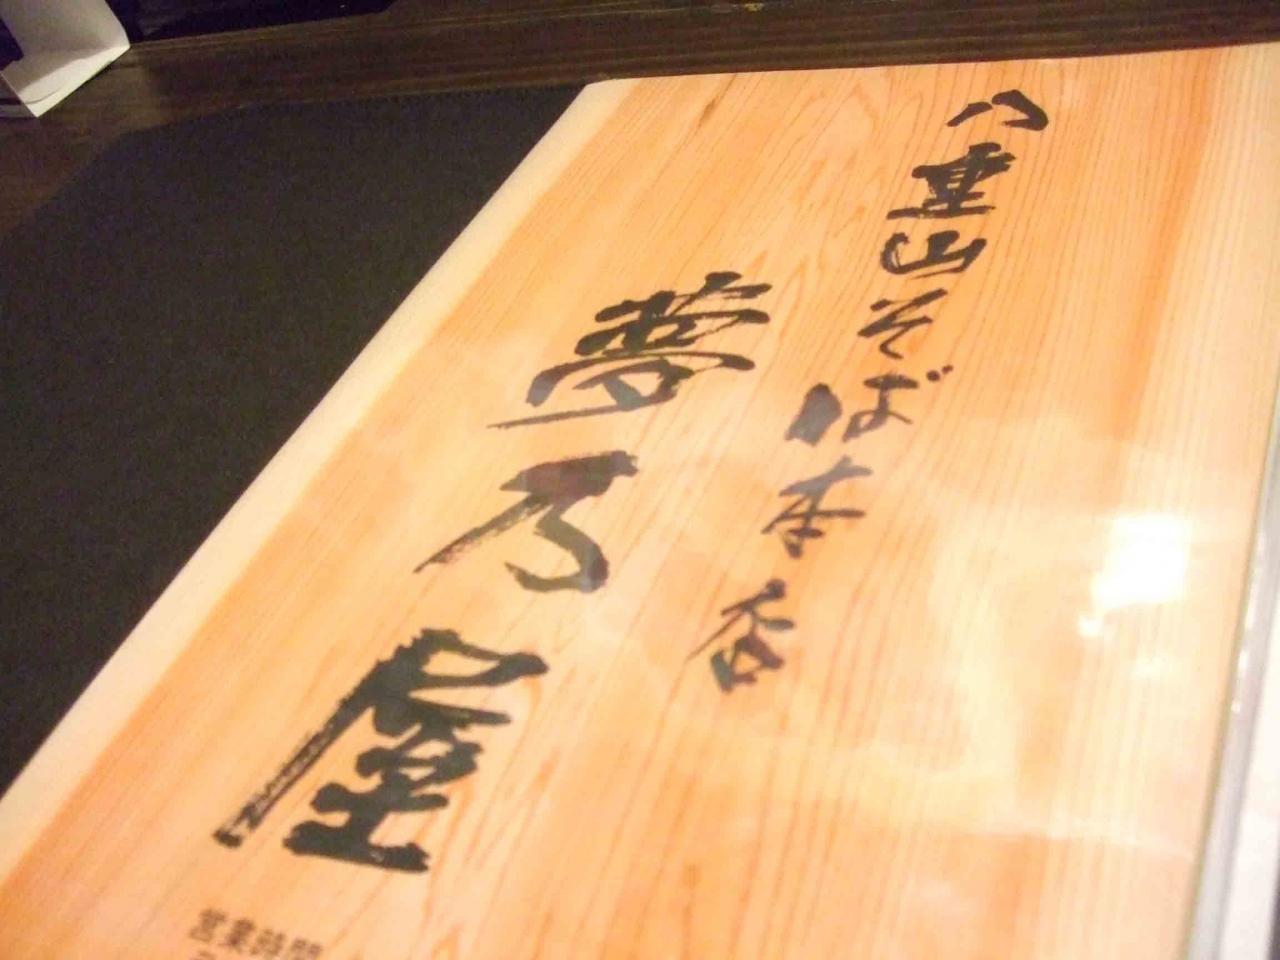 八重山そば本香
夢乃屋
営業時間